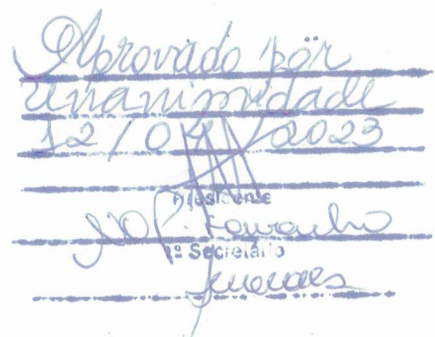 Aprovado por
unanimidade
12/04/2023
Presidente
1º Secretário